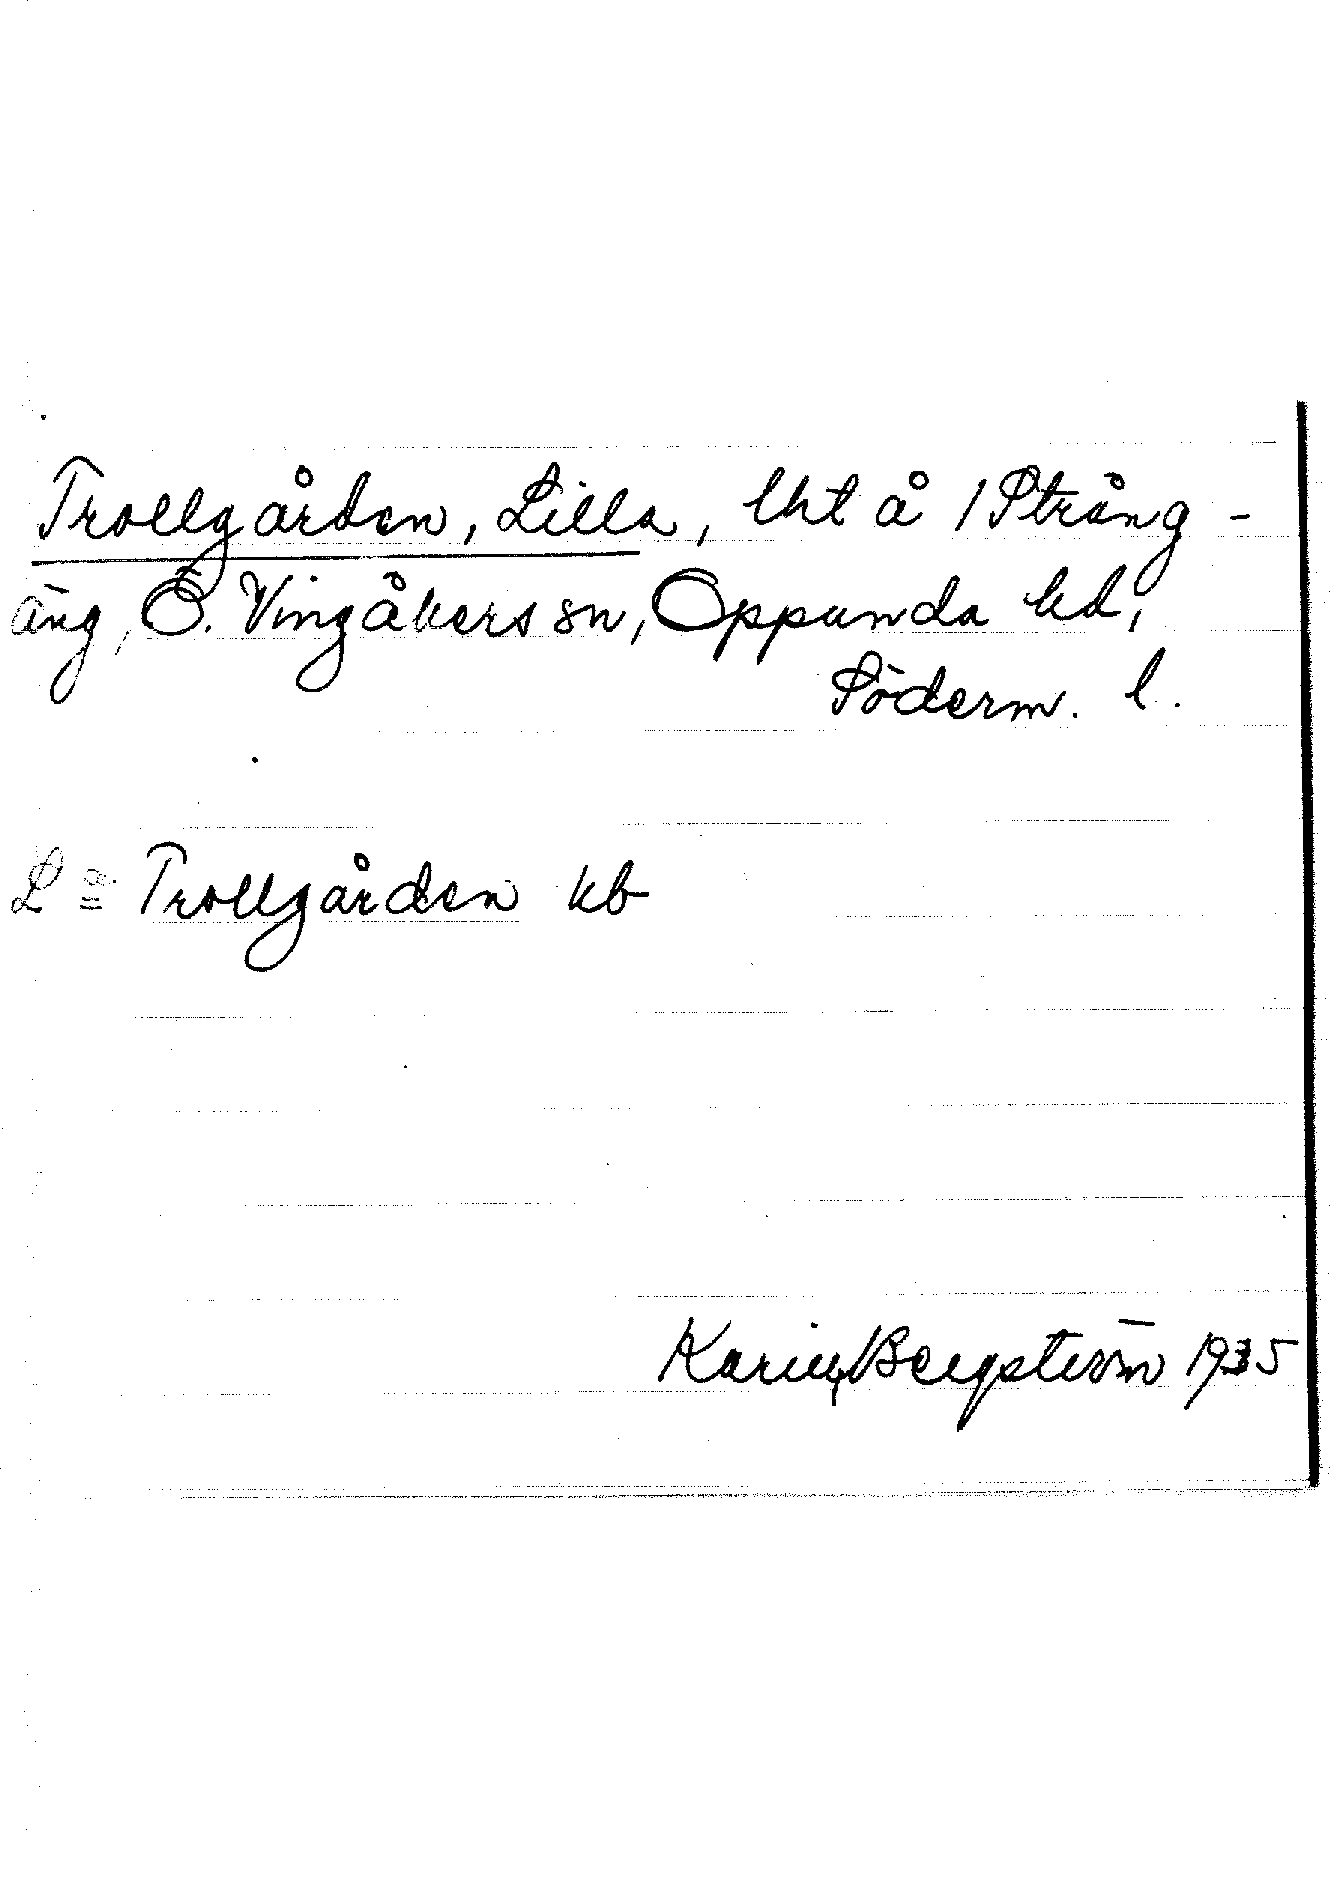 Trollgården, Lilla, lht å 1 Sträng-
äng, Ö. Vingåkers sn, Oppunda hd,
Söderm. l.
L:a Trollgården kb
Karin Bergström 1935